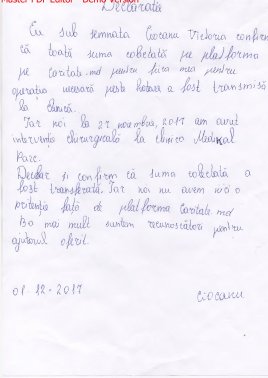 Master PDF Editor - Demo Version
Declarație
Eu sub semnata Ciocanu Victoria confirm
că toată suma colectată pe platforma
pe Caritate.md pentru fiica mea pentru
operația necesară peste hotare a fost transmisă
la clinică.
Iar noi la 27 noiembrie, 2017 am avut
intervenție chirurgicală la clinica Medical
Parc.
Declar și confirm că suma colectată a
fost transferată. Iar noi nu avem nici o
pretenție față de platforma Caritate.md
Ba mai mult suntem recunoscători pentru
ajutorul oferit.
01.12.2017
Ciocanu